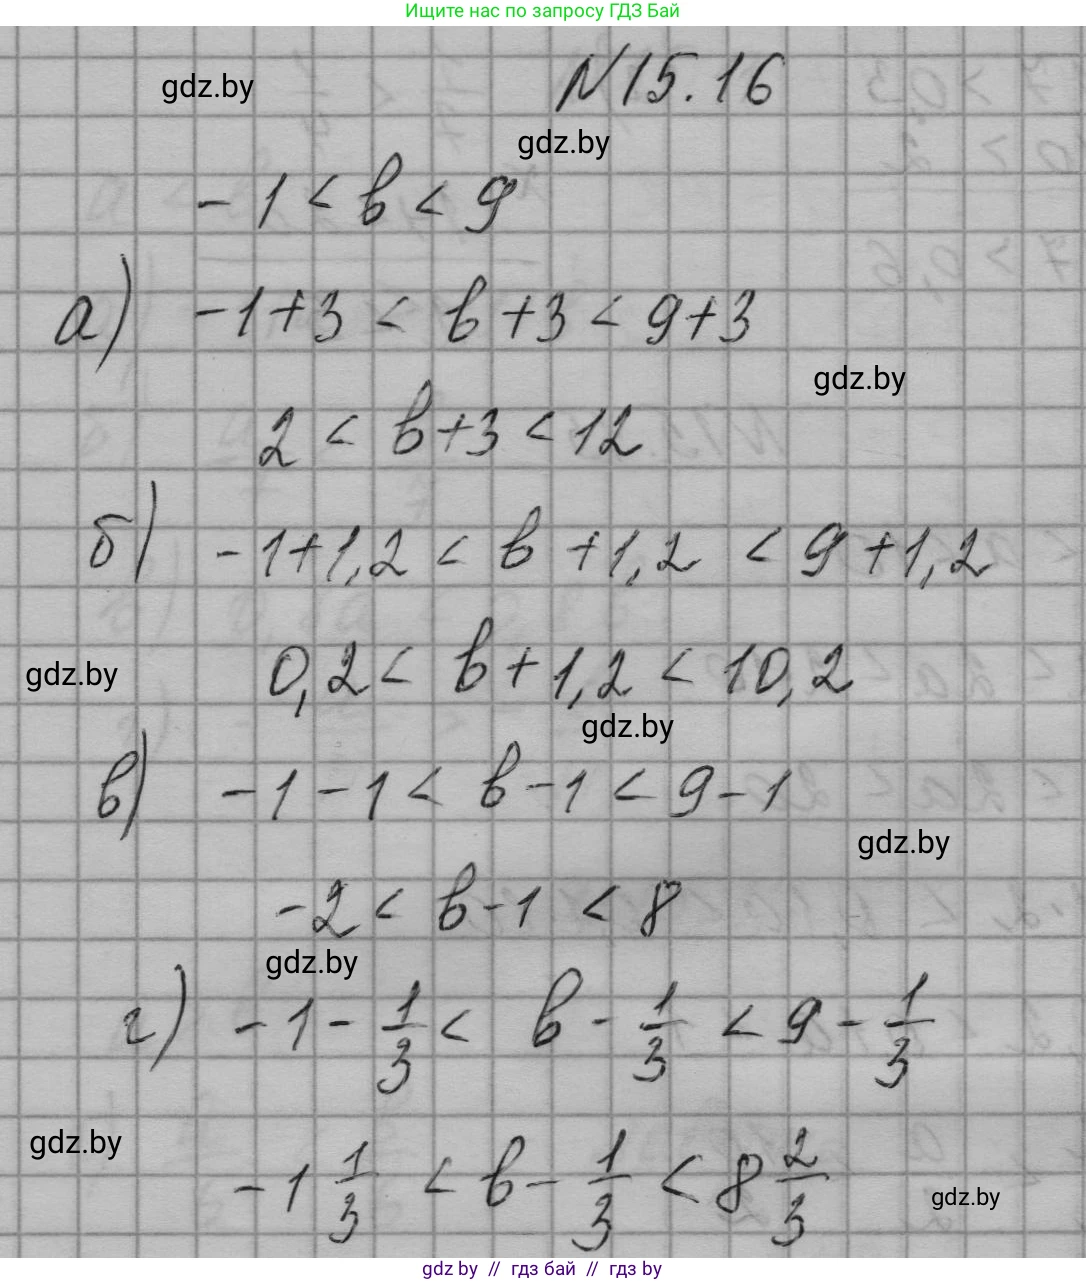 Ищите нас по запросу ГДЗ Бай
gdz.by
N15.16
gdz.by
-1 < b < 9
а) -1+3 < b+3 < 9+3
gdz.by
2 < b+3 < 12
б) -1+1,2 < b+1,2 < 9+1,2
gdz.by
0,2 < b+1,2 < 10,2
gdz.by
в) -1-1 < b-1 < 9-1
gdz.by
-2 < b-1 < 8
gdz.by
г) -1-1/3 < b-1/3 < 9-1/3
gdz.by
-1 1/3 < b-1/3 < 8 2/3
gdz.by
gdz by // гдз бай // гдз by